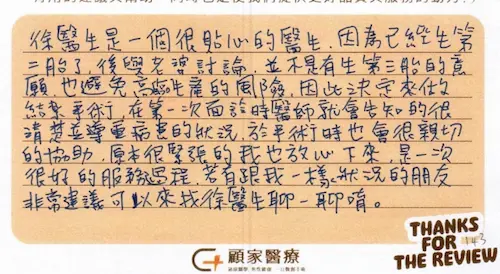 徐醫生是一個很貼心的醫生,因為已經生第
二胎了,後與老婆討論,並不是有生第三胎的意
願也避免高齡生產的風險,因此決定來做
結紮手術,在第一次面診時醫師就會告知的很
清楚並尊重病患的狀況,於手術時也會很親切
的協助,原本很緊張的我也放心下來,是一次
很好的服務過程,若有跟我一樣狀況的朋友
非常建議可以來找徐醫生聊一聊唷。
THANKS
FOR
THE REVIEW
顧家醫療